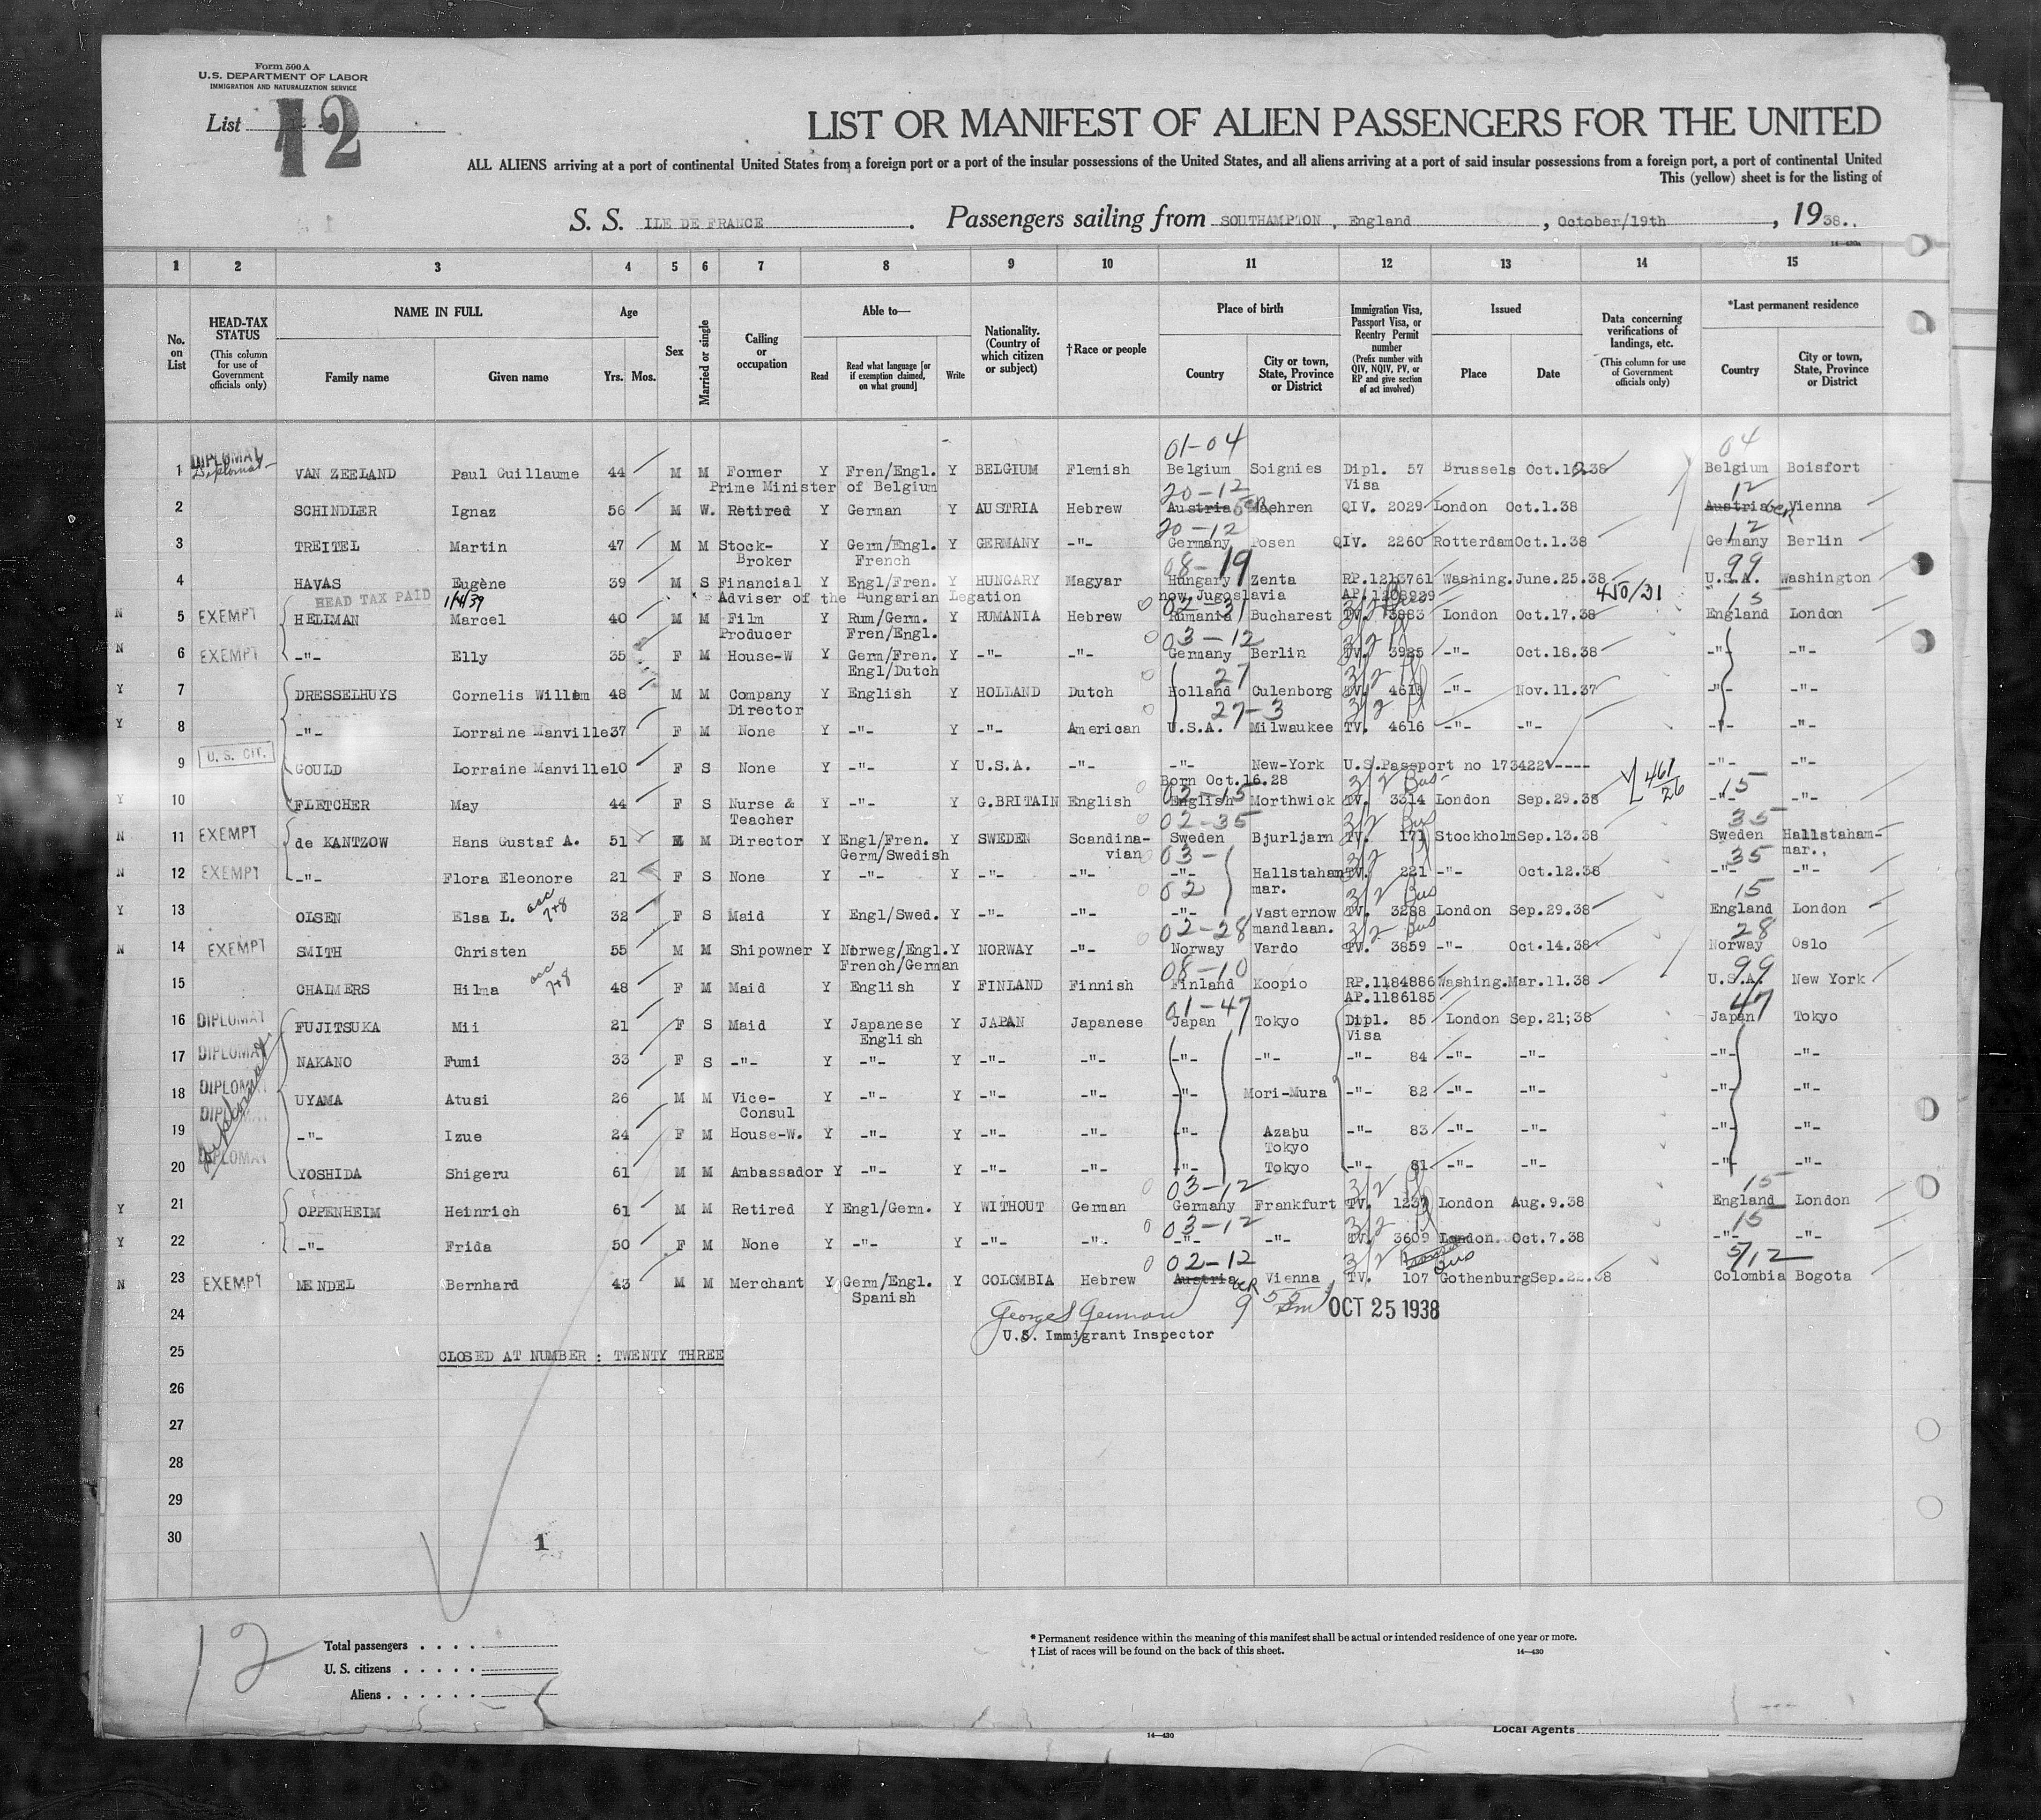 Form 500 A
U.S. DEPARTMENT OF LABOR
IMMIGRATION AND NATURALIZATION SERVICE
List 12
LIST OR MANIFEST OF ALIEN PASSENGERS FOR THE UNITED
ALL ALIENS arriving at a port of continental United States from a foreign port or a port of the insular possessions of the United States, and all aliens arriving at a port of said insular possessions from a foreign port, a port of continental United
This (yellow) sheet is for the listing of
S. S. ILE DE FRANCE. Passengers sailing from SOUTHAMPTON, England, October/19th, 1938.
14—430a
1 2 3 4 5 6 7 8 9 10 11 12 13 14 15
No. on List
HEAD-TAX STATUS (This column for use of Government officials only)
NAME IN FULL Family name Given name
Age Yrs. Mos.
Sex
Married or single
Calling or occupation
Able to— Read Read what language [or if exemption claimed, on what ground] Write
Nationality. (Country of which citizen or subject)
†Race or people
Place of birth Country City or town, State, Province or District
Immigration Visa, Passport Visa, or Reentry Permit number (Prefix number with QIV, NQIV, PV, or RP and give section of act involved)
Issued Place Date
Data concerning verifications of landings, etc. (This column for use of Government officials only)
*Last permanent residence Country City or town, State, Province or District
01-04 04
1 DIPLOMAT Diplomat VAN ZEELAND Paul Guillaume 44 M M Former Y Fren/Engl. Y BELGIUM Flemish Belgium Soignies Dipl. 57 Brussels Belgium Boisfort
Prime Minister of Belgium Visa
20-12 12
2 SCHINDLER Ignaz 56 M W. Retired Y German Y AUSTRIA Hebrew Austria Ger Maehren QIV. 2029 London Oct.1.38 Austria Ger Vienna
20-12 12
3 TREITEL Martin 47 M M Stock- Y Germ/Engl. Y GERMANY -"- Germany Posen QIV. 2260 Rotterdam Oct.1.38 Germany Berlin
Broker French
08-19 99
4 HAVAS Eugène 39 M S Financial Y Engl/Fren. Y HUNGARY Magyar Hungary Zenta RP.1213761 Washing. June.25.38 U.S.A. Washington
HEAD TAX PAID 1/4/39 Adviser of the Hungarian Legation now Jugoslavia AP/1208929 450/31
02-31 15
N 5 EXEMPT HELLMAN Marcel 40 M M Film Y Rum/Germ. Y RUMANIA Hebrew Rumania Bucharest TV. 3883 London Oct.17.38 England London
Producer Fren/Engl.
03-12 3/2
N 6 EXEMPT -"- Elly 35 F M House-W Y Germ/Fren. Y -"- -"- Germany Berlin TV. 3985 -"- Oct.18.38 -"- -"-
Engl/Dutch
27 3/2
Y 7 DRESSELHUYS Cornelis Willem 48 M M Company Y English Y HOLLAND Dutch Holland Culenborg TV. 4615 -"- Nov.11.37 -"- -"-
Director
27-3 3/2
Y 8 -"- Lorraine Manville 37 F M None Y -"- Y -"- American U.S.A. Milwaukee TV. 4616 -"- -"- -"- -"-
9 U. S. CIT. GOULD Lorraine Manville 10 F S None Y -"- Y U.S.A. -"- -"- New-York U.S.Passport no 173422 ---- -"- -"-
Born Oct.16.28 461/26
02-15 3/2 Bus 15
Y 10 FLETCHER May 44 F S Nurse & Y -"- Y G.BRITAIN English English Morthwick TV. 3314 London Sep.29.38 -"- -"-
Teacher
02-35 3/2 Bus 35
N 11 EXEMPT de KANTZOW Hans Gustaf A. 51 M M Director Y Engl/Fren. Y SWEDEN Scandina- Sweden Bjurljarn TV. 171 Stockholm Sep.13.38 Sweden Hallstaham-
Germ/Swedish vian mar.,
03- 3/2 35
N 12 EXEMPT -"- Flora Eleonore 21 F S None Y -"- Y -"- -"- -"- Hallstaham TV. 221 -"- Oct.12.38 -"- -"-
mar.
02 3/2 Bus 15
Y 13 OLSEN Elsa L. 32 F S Maid Y Engl/Swed. Y -"- -"- -"- Vasternow TV. 3288 London Sep.29.38 England London
mandlaan.
02-28 3/2 Bus 28
N 14 EXEMPT SMITH Christen 55 M M Shipowner Y Norweg/Engl. Y NORWAY -"- Norway Vardo TV. 3859 -"- Oct.14.38 Norway Oslo
French/German
08-10 99
15 CHALMERS Hilma 48 F M Maid Y English Y FINLAND Finnish Finland Koopio RP.1184886 Washing. Mar.11.38 U.S.A. New York
AP.1186185
01-47 47
16 DIPLOMAT FUJITSUKA Mii 21 F S Maid Y Japanese Y JAPAN Japanese Japan Tokyo Dipl. 85 London Sep.21;38 Japan Tokyo
English Visa
17 DIPLOMAT NAKANO Fumi 33 F S -"- Y -"- Y -"- -"- -"- -"- -"- 84 -"- -"- -"- -"-
18 DIPLOMAT UYAMA Atusi 26 M M Vice- Y -"- Y -"- -"- -"- Mori-Mura -"- 82 -"- -"- -"- -"-
Consul
19 DIPLOMAT -"- Izue 24 F M House-W. Y -"- Y -"- -"- -"- Azabu -"- 83 -"- -"- -"- -"-
Tokyo
20 DIPLOMAT YOSHIDA Shigeru 61 M M Ambassador Y -"- Y -"- -"- -"- Tokyo -"- 81 -"- -"- -"- -"-
Diplomat
03-12 3/2 15
Y 21 OPPENHEIM Heinrich 61 M M Retired Y Engl/Germ. Y WITHOUT German Germany Frankfurt TV. 1237 London Aug.9.38 England London
03-12 3/2 15
Y 22 -"- Frida 50 F M None Y -"- Y -"- -"- -"- -"- TV. 3609 London. Oct.7.38 -"- -"-
02-12 3/2 Bus 5/12
N 23 EXEMPT MENDEL Bernhard 43 M M Merchant Y Germ/Engl. Y COLOMBIA Hebrew Austria Ger Vienna TV. 107 Gothenburg Sep.22.38 Colombia Bogota
Spanish
24 OCT 25 1938
U.S. Immigrant Inspector
25 CLOSED AT NUMBER : TWENTY THREE
26
27
28
29
30
1
12
Total passengers
U. S. citizens
Aliens
* Permanent residence within the meaning of this manifest shall be actual or intended residence of one year or more.
† List of races will be found on the back of this sheet.
14—430
14—430
Local Agents